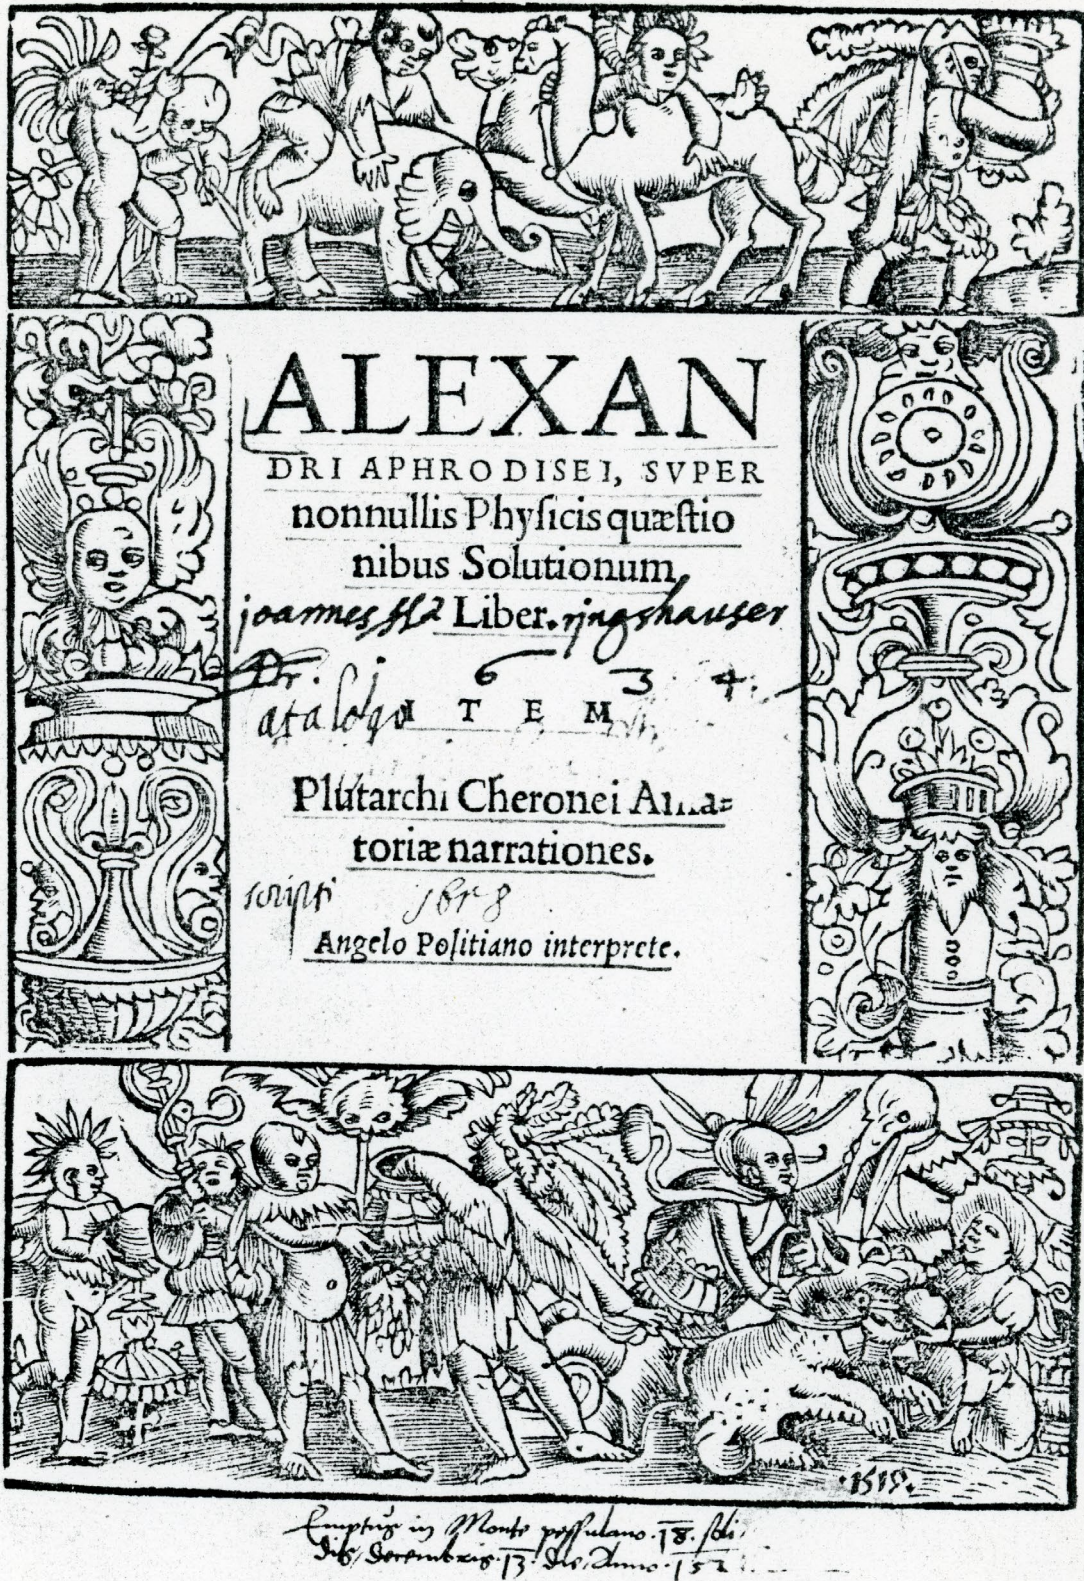 ALEXAN
DRI APHRODISEI, SVPER
nonnullis Phyſicis quæſtio
nibus Solutionum
joannes Liber. ringshauser
Dr. 6 3 4.
ITEM
Plutarchi Cheronei Ama=
toriæ narrationes.
Angelo Politiano interprete.
Emptus in Monte pessulano .18. soli
dis, decembris .13. die, Anno .152